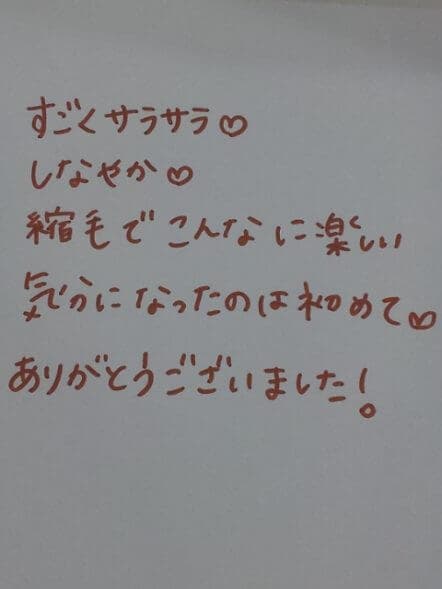 すごくサラサラ♡
しなやか♡
縮毛でこんなに楽しい
気分になったのは初めて♡
ありがとうございました!